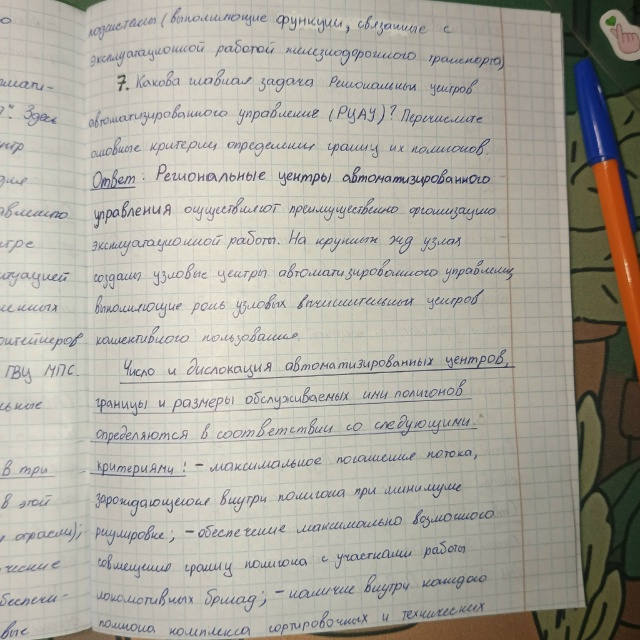 подсистемы (выполняющие функции, связанные с
эксплуатационной работой железнодорожного транспорта)
7. Какова главная задача Региональных центров
автоматизированного управления (РЦАУ)? Перечислите
основные критерии определения границ их полигонов.
Ответ: Региональные центры автоматизированного
управления осуществляют преимущественно организацию
эксплуатационной работы. На крупных жд узлах
созданы узловые центры автоматизированного управления,
выполняющие роль узловых вычислительных центров
коллективного пользования.
Число и дислокация автоматизированных центров,
границы и размеры обслуживаемых ими полигонов
определяются в соответствии со следующими
критериями: - максимальное погашение потока,
зарождающегося внутри полигона при минимуме
регулировке; - обеспечение максимально возможного
совмещения границ полигона с участками работы
локомотивных бригад; - наличие внутри каждого
полигона комплекса сортировочных и технических
". Здесь
центре
итуацией
онтейнеров
ГВЦ МПС.
в три
в этой
отрасли);